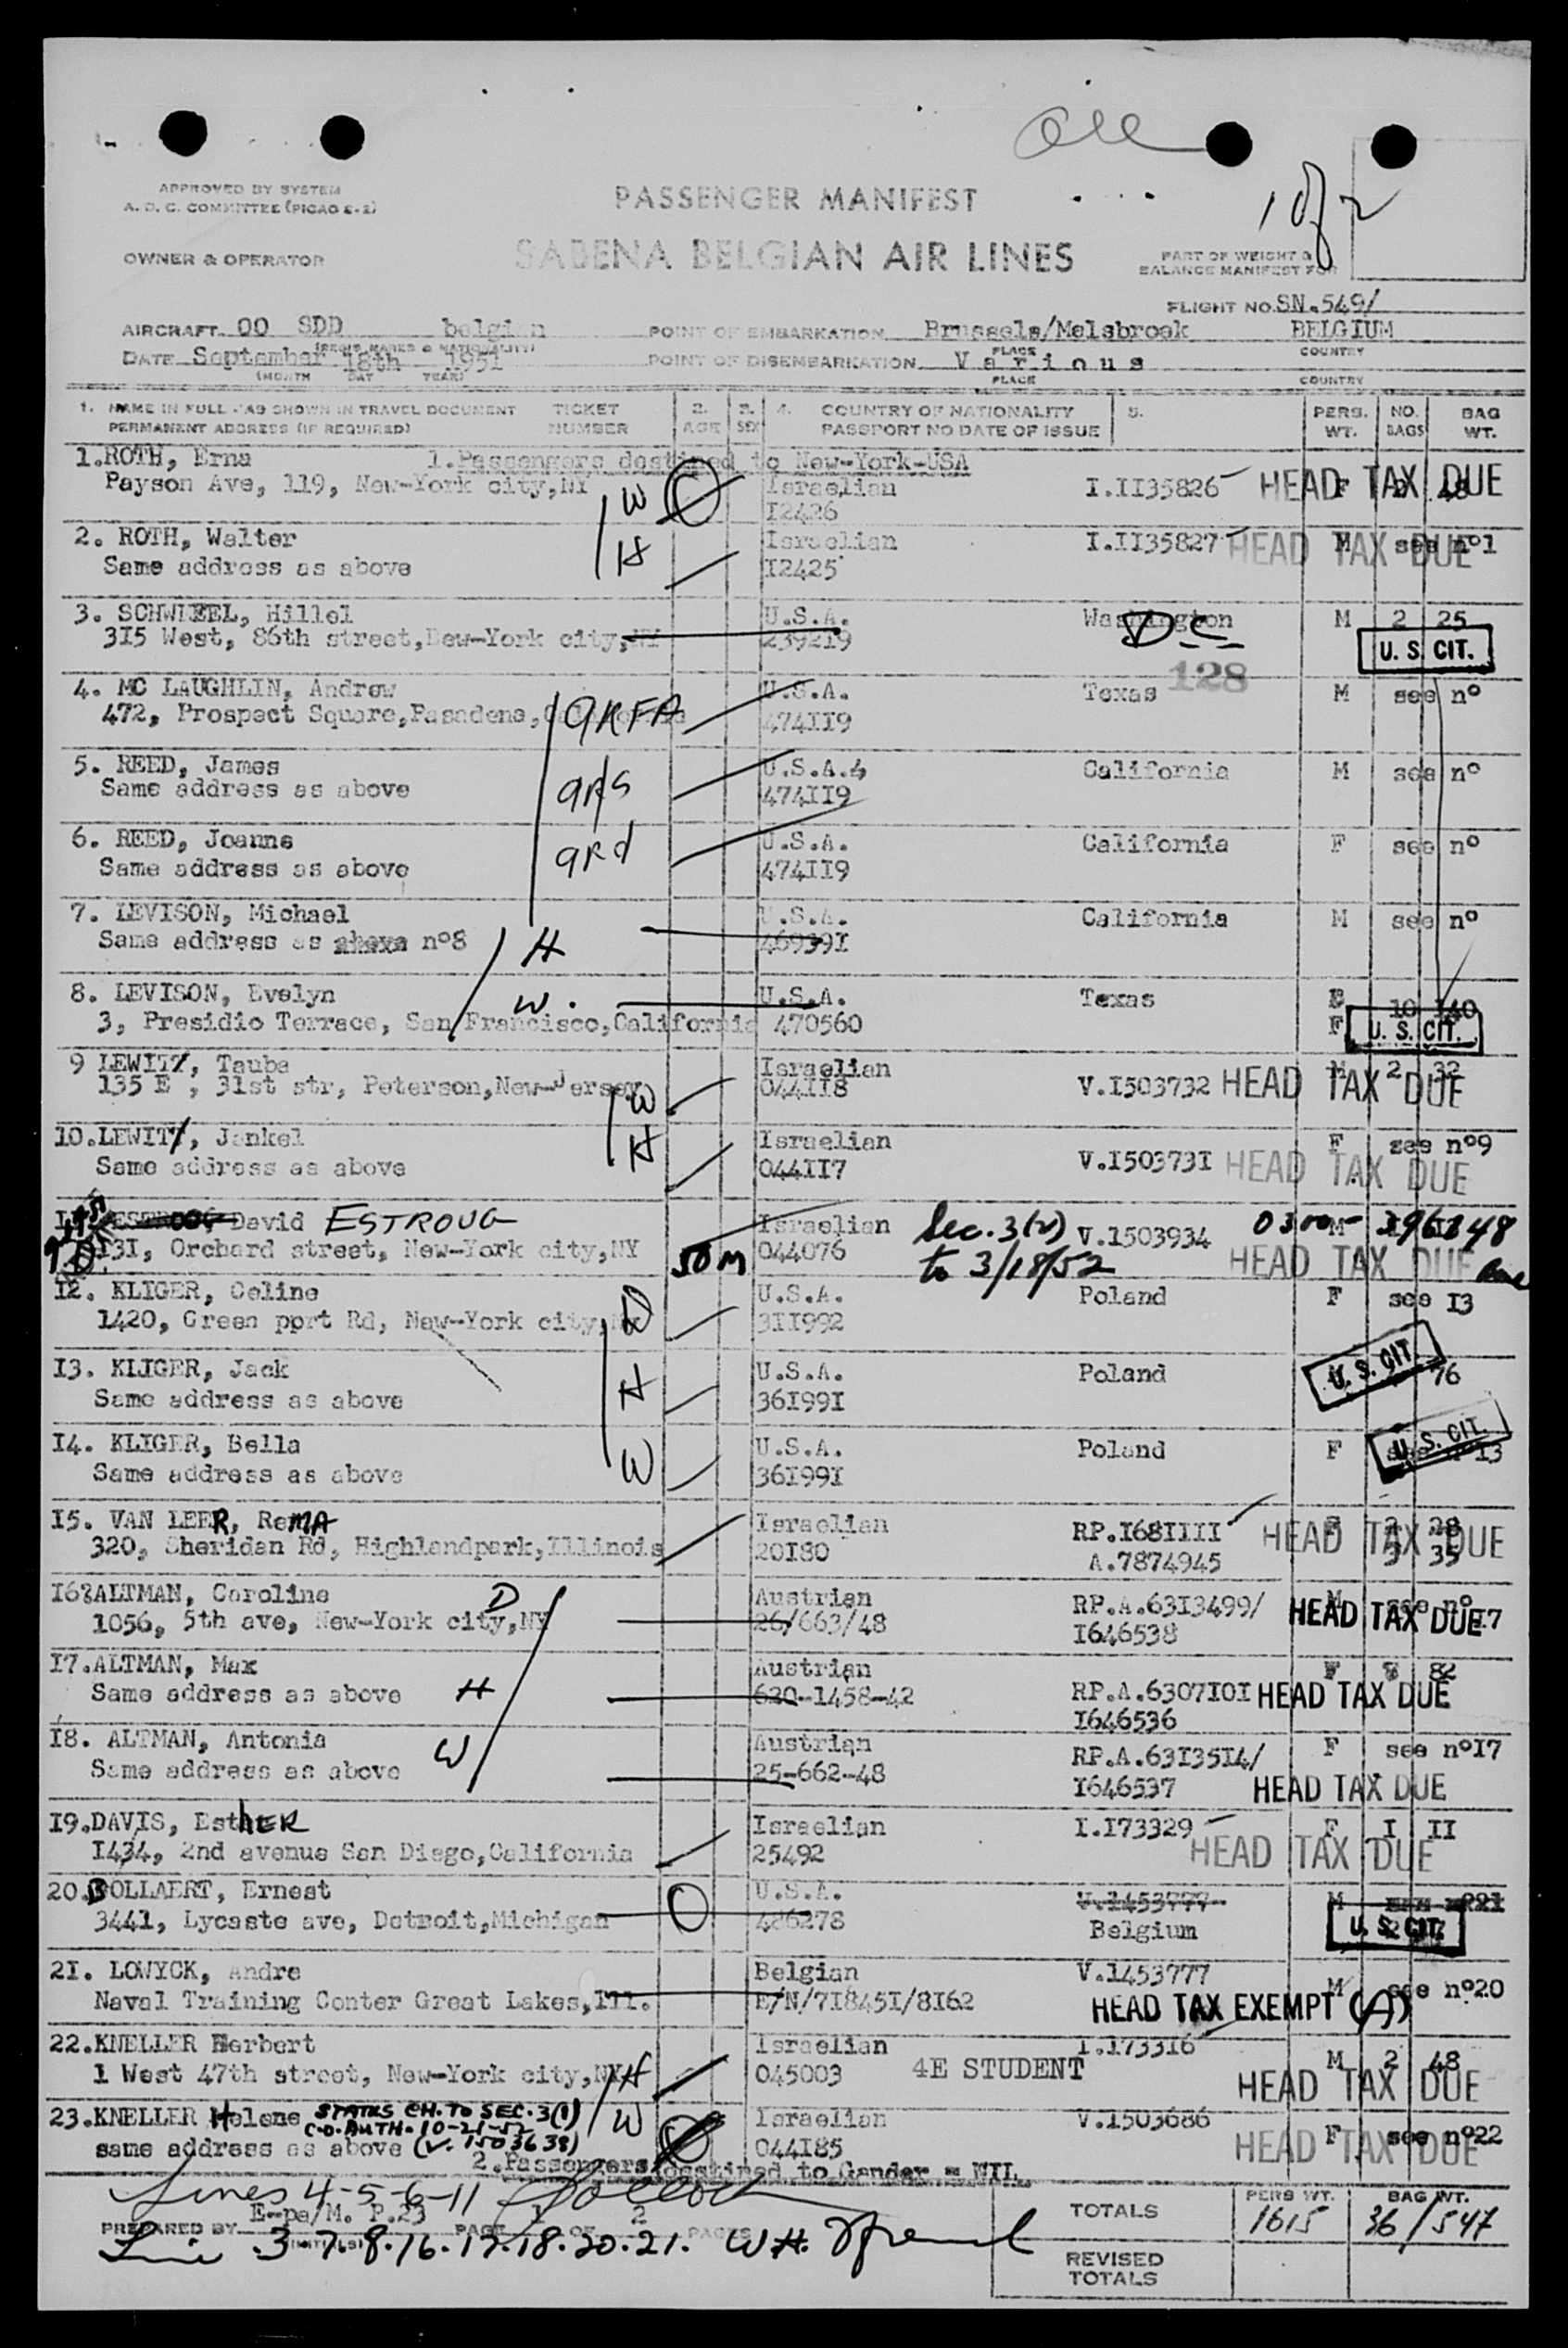 Oll
1 of 2
APPROVED BY SYSTEM
A. D. C. COMMITTEE (PICAO 2-2)
PASSENGER MANIFEST
OWNER & OPERATOR
SABENA BELGIAN AIR LINES
PART OF WEIGHT &
BALANCE MANIFEST FOR
FLIGHT NO. SN.549/
AIRCRAFT OO SDD belgian POINT OF EMBARKATION Brussels/Melsbroek BELGIUM
(REGIS. MARKS & NATIONALITY) PLACE COUNTRY
DATE September 18th 1951 POINT OF DISEMBARKATION Various
(MONTH DAY YEAR) PLACE COUNTRY
1. NAME IN FULL (AS SHOWN IN TRAVEL DOCUMENT TICKET 2. 3. 4. COUNTRY OF NATIONALITY 5. PERS. NO. BAG
PERMANENT ADDRESS (IF REQUIRED) NUMBER AGE SEX PASSPORT NO DATE OF ISSUE WT. BAGS WT.
1.Passengers destined to New-York-USA
1.ROTH, Erna Israelian I.II35826 F 48 HEAD TAX DUE
Payson Ave, 119, New-York city,NY W I2426
2. ROTH, Walter Israelian I.II35827 M see nº1 HEAD TAX DUE
Same address as above H I2425
3. SCHWEEL, Hillel U.S.A. Washington DC M 2 25
3I5 West, 86th street,Dew-York city,NY 2392I9 U. S. CIT.
128
4. MC LAUGHLIN, Andrew U.S.A. Texas M see nº
472, Prospect Square,Pasadena,California GRFA 474II9
5. REED, James U.S.A.4 California M see nº
Same address as above GRS 474II9
6. REED, Joanne U.S.A. California F see nº
Same address as above GRd 474II9
7. LEVISON, Michael U.S.A. California M see nº
Same address as above nº8 H 46939I
8. LEVISON, Evelyn W. U.S.A. Texas F 10 140
3, Presidio Terrace, San Francisco,California 470560 F U. S. CIT.
9 LEWITZ, Tauba Israelian M 2 32
135 E , 31st str, Peterson,New-Jersey W 044II8 V.I503732 HEAD TAX DUE
10.LEWITZ, Jankel Israelian F see nº9
Same address as above H 044II7 V.I50373I HEAD TAX DUE
David ESTROUG Israelian Sec. 3(2) V.1503934 0300- M 396348
I3I, Orchard street, New-York city,NY 50 M 044076 to 3/18/52 HEAD TAX DUE
I2. KLIGER, Celine U.S.A. Poland F see I3
1420, Green pport Rd, New-York city, D 3II992
I3. KLIGER, Jack U.S.A. Poland U. S. CIT. 76
Same address as above H 36I99I
I4. KLIGER, Bella U.S.A. Poland F U. S. CIT. I3
Same address as above W 36I99I
I5. VAN LEER, ReMA Israelian RP.I68IIII HEAD TAX DUE 2 28
320, Sheridan Rd, Highlandpark,Illinois 20I80 A.7874945 3 35
I6.ALTMAN, Caroline D Austrian RP.A.63I3499/ M see nº17
1056, 5th ave, New-York city,NY 26/663/48 I646538 HEAD TAX DUE
I7.ALTMAN, Max Austrian F 82
Same address as above H 620-1458-42 RP.A.6307I0I HEAD TAX DUE
I646536
I8. ALTMAN, Antonia Austrian RP.A.63I35I4/ F see nºI7
Same address as above W 25-662-48 I646537 HEAD TAX DUE
I9.DAVIS, EsthER Israelian I.I73329 F I II
I434, 2nd avenue San Diego,California 25492 HEAD TAX DUE
20.BOLLAERT, Ernest U.S.A. V.1453777 M nº21
3441, Lycaste ave, Detroit,Michigan 486278 Belgium U. S. CIT.
2I. LOWYCK, Andre Belgian V.1453777 M see nº20
Naval Training Center Great Lakes,Ill. E/N/7I845I/8I62 HEAD TAX EXEMPT (A)
22.KNELLER Herbert Israelian I.I73316 M 2 48
1 West 47th street, New-York city,NY H 045003 4E STUDENT HEAD TAX DUE
23.KNELLER Helene STATUS CH. TO SEC. 3(1) Israelian V.I503686 F see nº22
C.O. AUTH. 10-21-52 W HEAD TAX DUE
same address as above (V. 1503638) 044I85
2.Passengers destined to Gander = NIL.
Lines 4-5-6-11
E-pe/M. P.23 1 2
PREPARED BY (INITIALS) PAGE OF PAGES
Line 3.7.8.16.17.18.20.21. W.H.
TOTALS PERS WT. 1615 BAG WT. 36/547
REVISED
TOTALS